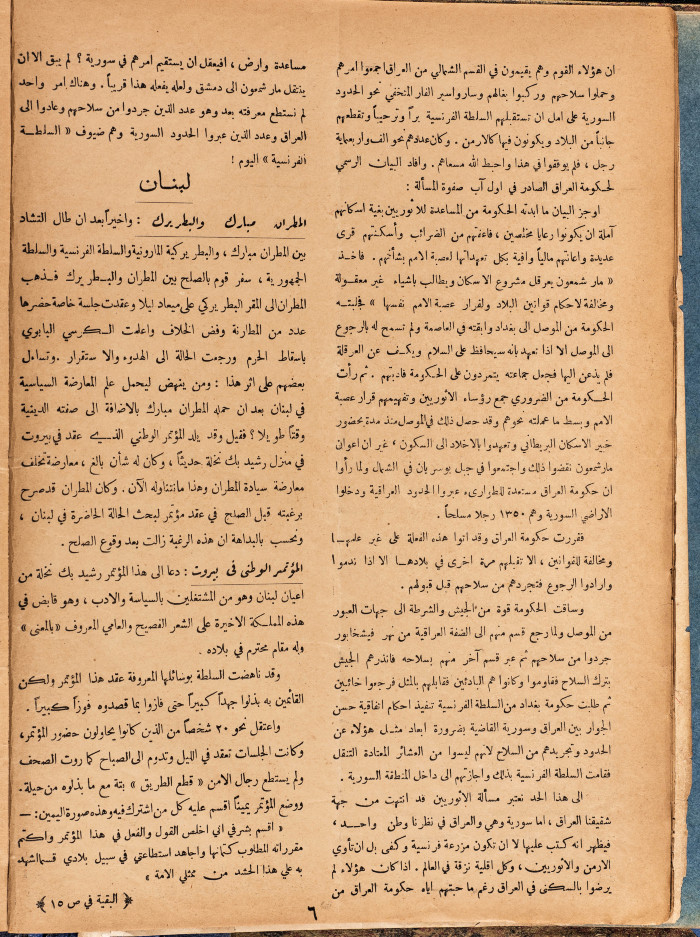 ان هؤلاء القوم وهم يقيمون في القسم الشمالي من العراق اجمعوا امرهم
وحملوا سلاحهم وركبوا بغالهم وساروا سير الفار المتخفي نحو الحدود
السورية على امل ان تستقبلهم السلطة الفرنسية براً وترحيباً وتقطعهم
جانباً من البلاد ويكونون فيها كالارمن . وكان عددهم نحو الف واربعماية
رجل ، فلم يوفقوا في هذا واحبط الله مسعاهم . وافاد البيان الرسمي
لحكومة العراق الصادر في اول آب صفوة المسألة :
اوجز البيان ما ابدته الحكومة من المساعدة للأثوريين بغية اسكانهم
آملة ان يكونوا رعايا مخلصين ، فاعفتهم من الضرائب وأسكنتهم قرى
عديدة واعانتهم مالياً وافية بكل تعهداتها لعصبة الامم بشأنهم . فاخذ
« مار شمعون يعرقل مشروع الاسكان ويطالب باشياء غير معقولة
ومخالفة لاحكام قوانين البلاد ولقرار عصبة الامم نفسها » فجلبته
الحكومة من الموصل الى بغداد وابقته في العاصمة ولم تسمح له بالرجوع
الى الموصل الا اذا تعهد بانه سيحافظ على السلام ويكف عن العرقلة
فلم يذعن اليها فجعل جماعته يتمردون على الحكومة فادبتهم . ثم رأت
الحكومة من الضروري جمع رؤساء الأثوريين وتفهيمهم قرار عصبة
الامم وبسط ما عملته نحوهم وقد حصل ذلك في الموصل منذ مدة بحضور
خبير الاسكان البريطاني وتعهدوا بالاخلاد الى السكون ، غير ان اعوان
مار شمعون نقضوا ذلك واجتمعوا في جبل بوسريان في الشمال ولما رأوا
ان حكومة العراق مستعدة للطوارىء عبروا الحدود العراقية ودخلوا
الاراضي السورية وهم ١٣٥٠ رجلا مسلحاً .
فقررت حكومة العراق وقد اتوا هذه الفعلة على غير علمها
ومخالفة للقوانين ، الا تقبلهم مرة اخرى في بلادها الا اذا ندموا
وارادوا الرجوع فتجردهم من سلاحهم قبل قبولهم .
وساقت الحكومة قوة من الجيش والشرطة الى جهات العبور
من الموصل ولما رجع قسم منهم الى الضفة العراقية من نهر فيشخابور
جردوا من سلاحهم ثم عبر قسم آخر منهم بسلاحه فانذرهم الجيش
بترك السلاح فقاوموا وكانوا هم البادئين فقابلهم بالمثل فرجعوا خائبين
ثم طلبت حكومة بغداد من السلطة الفرنسية تنفيذ احكام اتفاقية حسن
الجوار بين العراق وسورية القاضية بضرورة ابعاد مثل هؤلاء عن
الحدود وتجريدهم من السلاح لانهم ليسوا من العشائر المعتادة التنقل
فقامت السلطة الفرنسية بذلك واجازتهم الى داخل المنطقة السورية .
الى هذا الحد نعتبر مسألة الأثوريين قد انتهت من جهة
شقيقنا العراق ، اما سورية وهي والعراق في نظرنا وطن واحد ،
فيظهر انه كتب عليها الا ان تكون مزرعة فرنسية وكفى بل ان تأوي
الارمن والأثوريين ، وكل اقلية نزقة في العالم . اذا كان هؤلاء لم
يرضوا بالسكنى في العراق رغم ما حبتهم اياه حكومة العراق من
مساعدة وارض ، افيعقل ان يستقيم امرهم في سورية ؟ لم يبق الا ان
ينتقل مار شمعون الى دمشق ولعله يفعله هذا قريباً . وهناك امر واحد
لم نستطع معرفته بعد وهو عدد الذين جردوا من سلاحهم وعادوا الى
العراق وعدد الذين عبروا الحدود السورية وهم ضيوف « السلطة
الفرنسية » اليوم !
لبنان
المطران مبارك والبطريرك : واخيراً بعد ان طال التشاد
بين المطران مبارك ، والبطريركية المارونية والسلطة الفرنسية والسلطة
الجمهورية ، سفر قوم بالصلح بين المطران والبطريرك فذهب
المطران الى المقر البطريركي على ميعاد ليلا وعقدت جلسة خاصة حضرها
عدد من المطارنة وفض الخلاف واعلمت الكرسي البابوي
باسقاط الحرم ورجعت الحالة الى الهدوء والاستقرار . وتساءل
بعضهم على اثر هذا : ومن ينهض ليحمل علم المعارضة السياسية
في لبنان بعد ان حمله المطران مبارك بالاضافة الى صفته الدينية
وقتاً طويلا ؟ فقيل وقد يلد المؤتمر الوطني الذي عقد في بيروت
في منزل رشيد بك نخلة حديثاً ، وكان له شأن بالغ ، معارضة تخلف
معارضة سيادة المطران وهذا ما نتناوله الآن . وكان المطران قد صرح
برغبته قبل الصلح في عقد مؤتمر لبحث الحالة الحاضرة في لبنان ،
ونحسب بالبداهة ان هذه الرغبة زالت بعد وقوع الصلح .
المؤتمر الوطني في بيروت : دعا الى هذا المؤتمر رشيد بك نخلة من
اعيان لبنان وهو من المشتغلين بالسياسة والادب ، وهو قابض في
هذه المملكة الاخيرة على الشعر الفصيح والعامي المعروف « بالمعنى »
وله مقام محترم في بلاده .
وقد ناهضت السلطة بوسائلها المعروفة عقد هذا المؤتمر ولكن
القائمين به بذلوا جهداً كبيراً حتى فازوا بما قصدوه فوزاً كبيراً .
واعتقل نحو ٢٠ شخصاً من الذين كانوا يحاولون حضور المؤتمر ،
وكانت الجلسات تعقد في الليل وتدوم الى الصباح كما روت الصحف
ولم يستطع رجال الامن « قطع الطريق » بتة مع ما بذلوه من حيلة .
ووضع المؤتمر يميناً اقسم عليه كل من اشترك فيه وهذه صورة اليمين : —
« اقسم بشرفي اني اخلص القول والفعل في هذا المؤتمر واكتم
مقرراته المطلوب كتمانها واجاهد استطاعتي في سبيل بلادي قسما اشهد
به علي هذا الحشد من ممثلي الامة »
﴿ البقية في ص ١٥ ﴾
٦